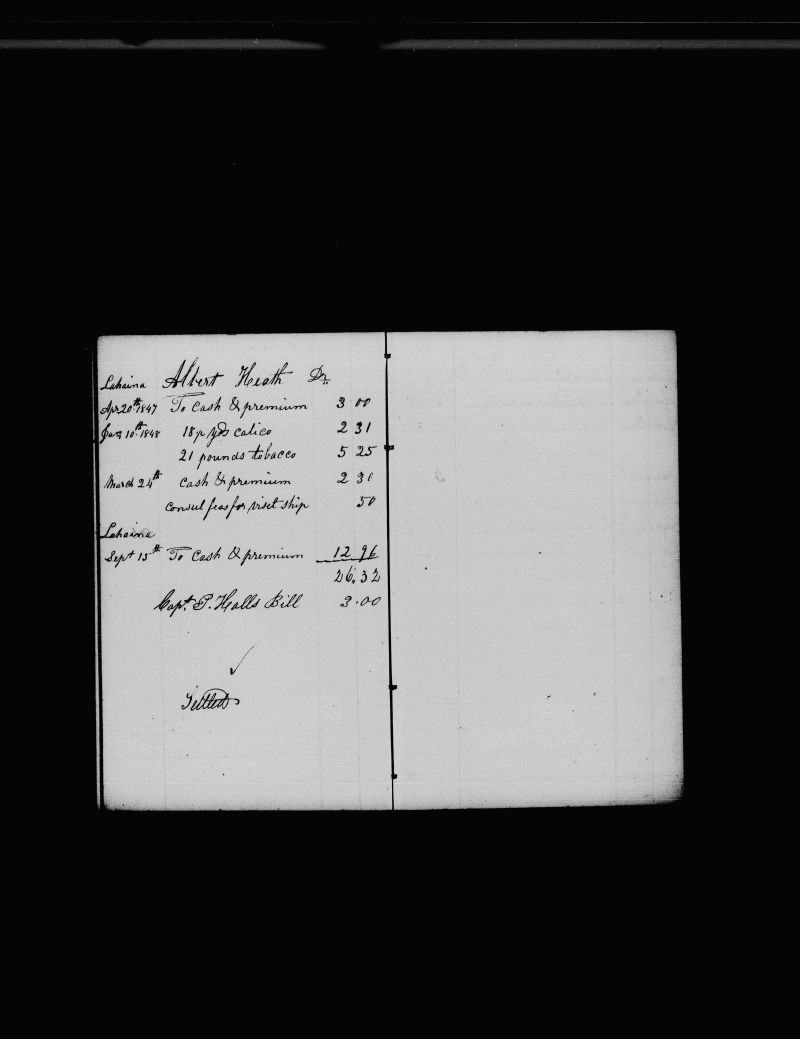 Lahaina Albert Heath Dr.
Apr 20th 1847 To Cash & premium 3 00
Jan 10th 1848 18 yds calico 2 31
21 pounds tobacco 5 25
March 24th cash & premium 2 30
consul fees for visit ship 50
Lahaina
Sept 15th To Cash & premium 12 96
26.32
Capt. P. Halls Bill 3.00
Settled